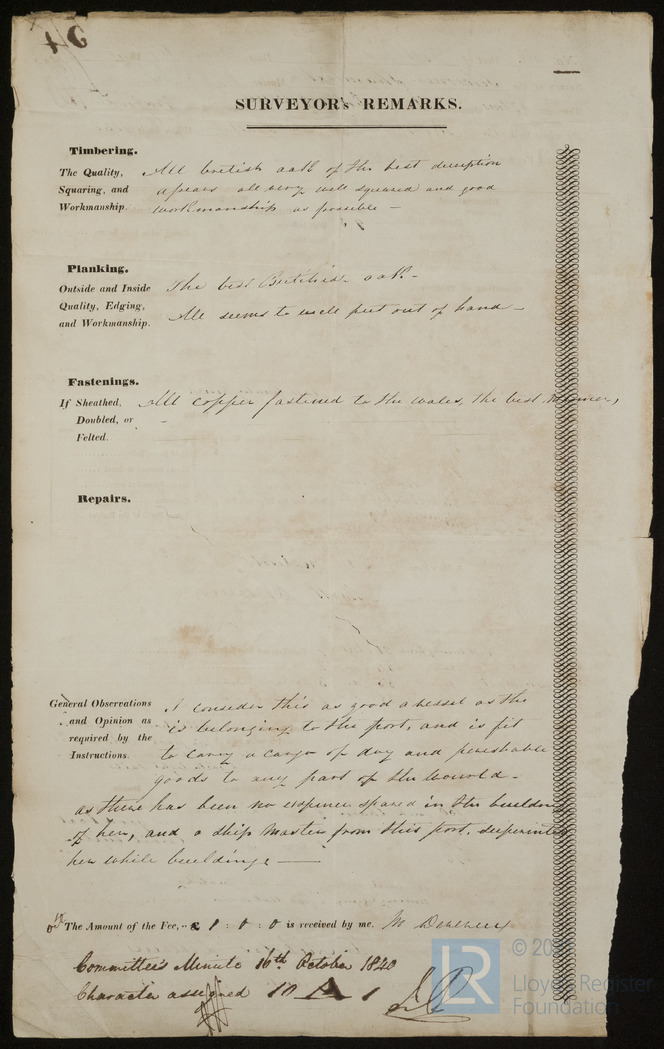 94
SURVEYOR's REMARKS.
Timbering.
The Quality,
Squaring, and
Workmanship.
All british oak of the best deccription
apears all very well squared and good
workmanship as possible –
Planking.
Outside and Inside
Quality, Edging,
and Workmanship.
The best Brittish oak –
All seems to well put out of hand –
Fastenings.
If Sheathed,
Doubled, or
Felted.
All copper fastened to the wales, the best manner,
Repairs.
General Observations
and Opinion as
required by the
Instructions.
I consider this as good a vessel as the
is belonging to the port, and is fit
to carry a cargo of dry and perishable
goods to any part of the would –
as there has been no expence spared in the buildin
of her, and a ship master from this port, superinte
her while building –
The Amount of the Fee, £ 1 : 0 : 0 is received by me. M
Committee's Minute 16th October 1840
Character assigned 10 A 1
LR
© 20
Lloyd's Register
Foundation